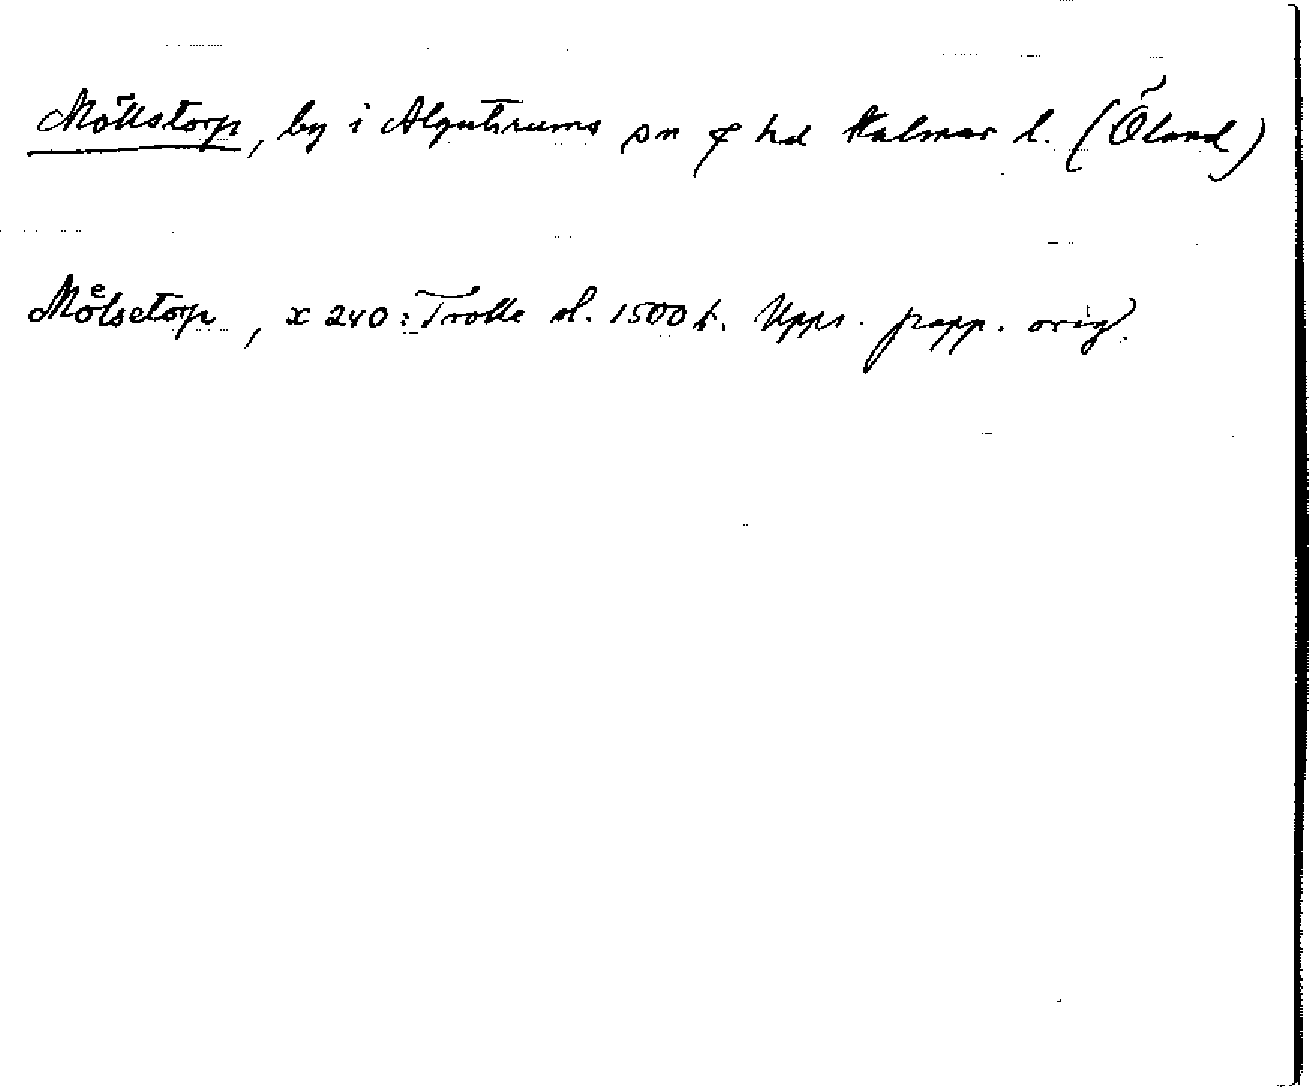 Möllstorp, by i Algutsrums sn o hd Kalmar l. (Öland)
Moͤlsetorp, x 240: Trolle sl. 1500 t. Upps. papp. orig.